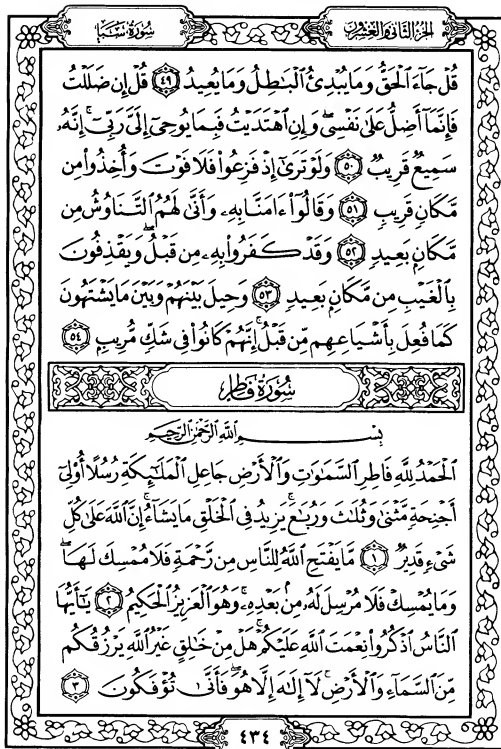 الجزء الثاني والعشرون
سورة سبإ
قُلْ جَآءَ ٱلْحَقُّ وَمَا يُبْدِئُ ٱلْبَٰطِلُ وَمَا يُعِيدُ ٤٩ قُلْ إِن ضَلَلْتُ
فَإِنَّمَآ أَضِلُّ عَلَىٰ نَفْسِىۖ وَإِنِ ٱهْتَدَيْتُ فَبِمَا يُوحِىٓ إِلَىَّ رَبِّىٓۚ إِنَّهُۥ
سَمِيعٌ قَرِيبٌ ٥٠ وَلَوْ تَرَىٰٓ إِذْ فَزِعُوا۟ فَلَا فَوْتَ وَأُخِذُوا۟ مِن
مَّكَانٍ قَرِيبٍ ٥١ وَقَالُوٓا۟ ءَامَنَّا بِهِۦ وَأَنَّىٰ لَهُمُ ٱلتَّنَاوُشُ مِن
مَّكَانٍۭ بَعِيدٍ ٥٢ وَقَدْ كَفَرُوا۟ بِهِۦ مِن قَبْلُۖ وَيَقْذِفُونَ
بِٱلْغَيْبِ مِن مَّكَانٍۭ بَعِيدٍ ٥٣ وَحِيلَ بَيْنَهُمْ وَبَيْنَ مَا يَشْتَهُونَ
كَمَا فُعِلَ بِأَشْيَاعِهِم مِّن قَبْلُۚ إِنَّهُمْ كَانُوا۟ فِى شَكٍّ مُّرِيبٍۭ ٥٤
سُورَةُ فَاطِرٍ
بِسْمِ ٱللَّهِ ٱلرَّحْمَٰنِ ٱلرَّحِيمِ
ٱلْحَمْدُ لِلَّهِ فَاطِرِ ٱلسَّمَٰوَٰتِ وَٱلْأَرْضِ جَاعِلِ ٱلْمَلَٰٓئِكَةِ رُسُلًا أُو۟لِىٓ
أَجْنِحَةٍ مَّثْنَىٰ وَثُلَٰثَ وَرُبَٰعَۚ يَزِيدُ فِى ٱلْخَلْقِ مَا يَشَآءُۚ إِنَّ ٱللَّهَ عَلَىٰ كُلِّ
شَىْءٍ قَدِيرٌ ١ مَّا يَفْتَحِ ٱللَّهُ لِلنَّاسِ مِن رَّحْمَةٍ فَلَا مُمْسِكَ لَهَاۖ
وَمَا يُمْسِكْ فَلَا مُرْسِلَ لَهُۥ مِنۢ بَعْدِهِۦۚ وَهُوَ ٱلْعَزِيزُ ٱلْحَكِيمُ ٢ يَٰٓأَيُّهَا
ٱلنَّاسُ ٱذْكُرُوا۟ نِعْمَتَ ٱللَّهِ عَلَيْكُمْۚ هَلْ مِنْ خَٰلِقٍ غَيْرُ ٱللَّهِ يَرْزُقُكُم
مِّنَ ٱلسَّمَآءِ وَٱلْأَرْضِۚ لَآ إِلَٰهَ إِلَّا هُوَۖ فَأَنَّىٰ تُؤْفَكُونَ ٣
٤٣٤